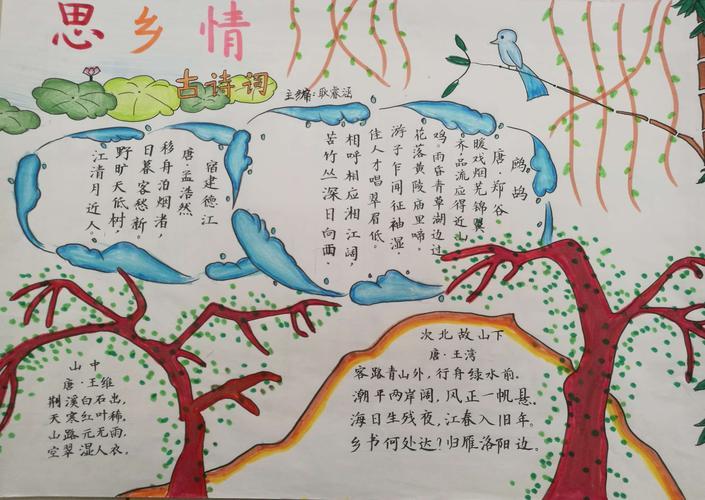 思乡情
古诗词
主编:耿睿涵
鹧鸪
唐·郑谷
暖戏烟芜锦翼
齐品流应得近山
鸡。雨昏青草湖边过
花落黄陵庙里啼。
游子乍闻征袖湿,
佳人才唱翠眉低。
相呼相应湘江阔,
苦竹丛深日向西。
宿建德江
唐·孟浩然
移舟泊烟渚,
日暮客愁新。
野旷天低树,
江清月近人。
山中
唐·王维
荆溪白石出,
天寒红叶稀。
山路元无雨,
空翠湿人衣。
次北故山下
唐·王湾
客路青山外,行舟绿水前.
潮平两岸阔,风正一帆悬.
海日生残夜,江春入旧年.
乡书何处达?归雁洛阳边.